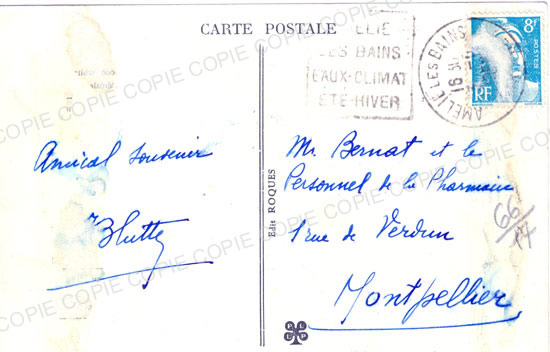 CARTE POSTALE
AMELIE
LES BAINS
EAUX-CLIMAT
ETE-HIVER
AMELIE LES BAINS
16
8F
POSTES
RF
Amical souvenir
Mr. Bernat et le
Personnel de la Pharmacie
1 rue de Verdun
Montpellier
Edit ROQUES
66/
COPIE COPIE COPIE COPIE COPIE